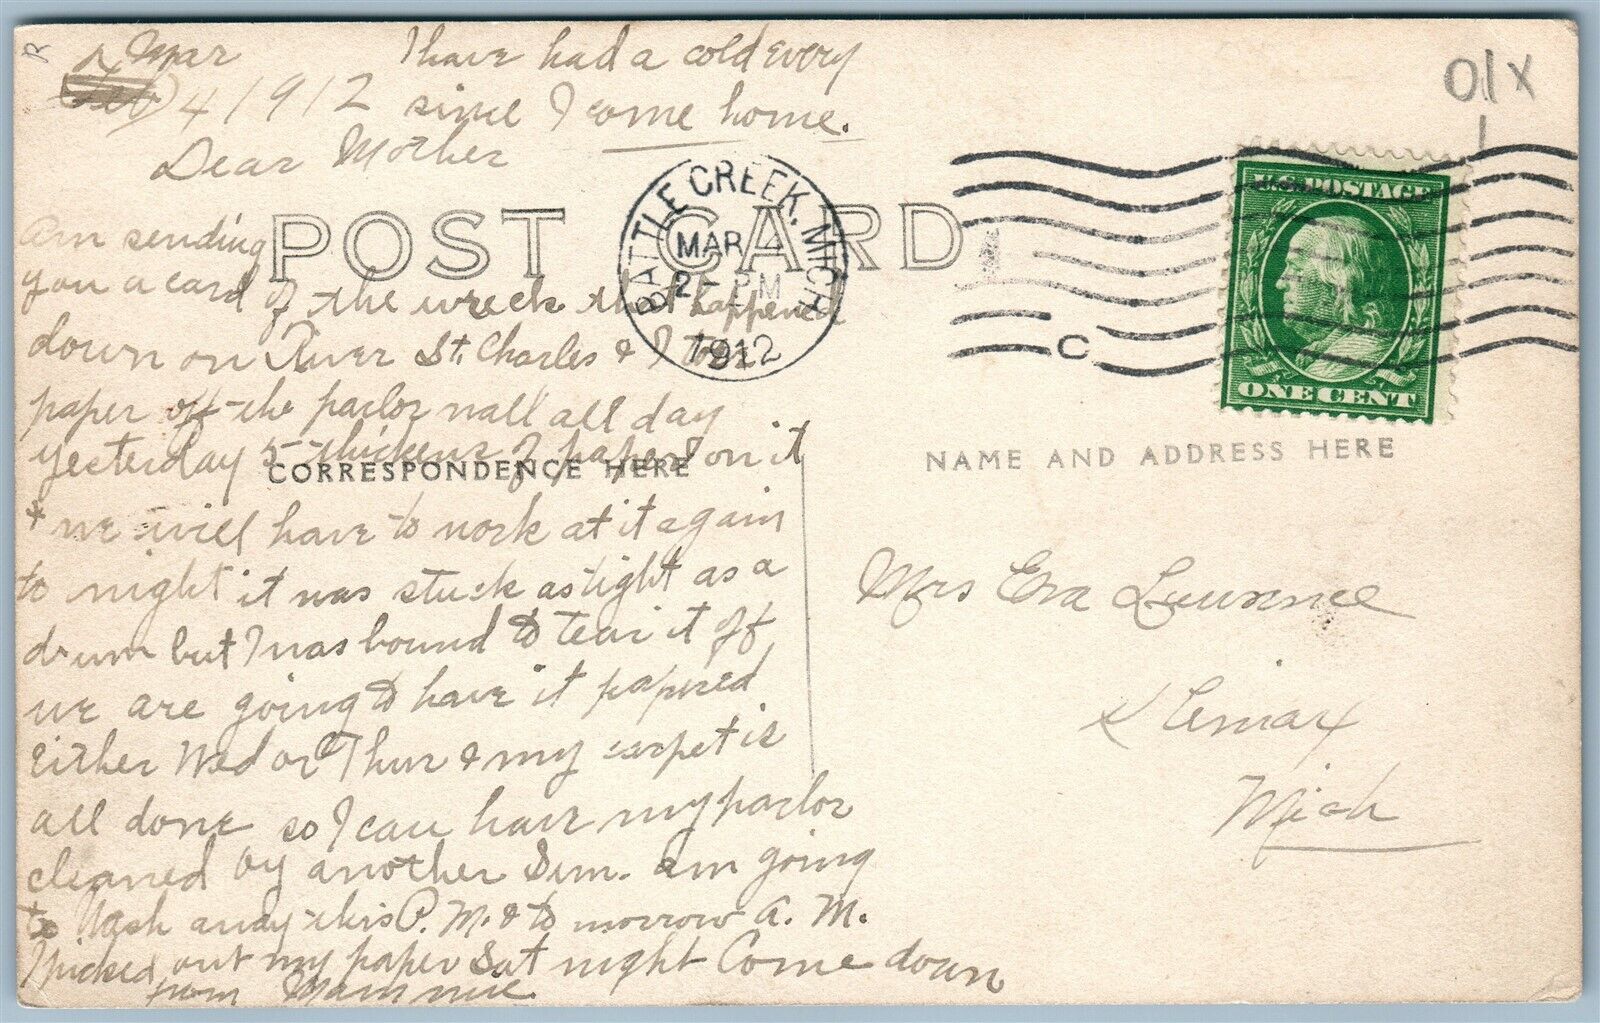 Mar
Feb 4 1912
I have had a cold every
since I come home.
Dear Mother
am sending
you a card of the wreck that happened
down on River St. Charles & I tore
paper off the parlor wall all day
yesterday 5 thickens of paper on it
& we will have to work at it again
to night it was stuck as tight as a
drum but I was bound to tear it off
we are going to have it papered
Either Wed or Thur & my carpet is
all done so I can have my parlor
cleaned by another Sun. am going
to Wash this P. M. & to morrow A. M.
I picked out my paper Sat night Come down
from Mammie
POST CARD
CORRESPONDENCE HERE
BATTLE CREEK, MICH
MAR 4
2 - PM
1912
C
U.S. POSTAGE
ONE CENT
01X
R
NAME AND ADDRESS HERE
Mrs Eva Lawrence
Climax
Mich